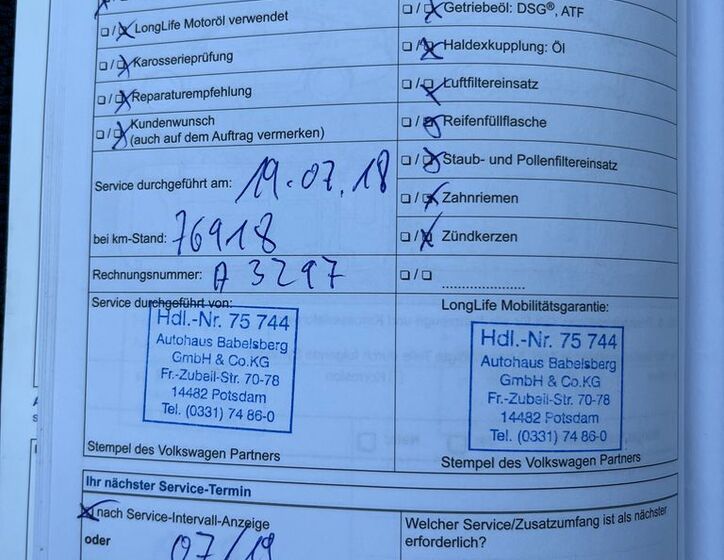 Getriebeöl: DSG®, ATF
LongLife Motoröl verwendet
Haldexkupplung: Öl
Karosserieprüfung
Luftfiltereinsatz
Reparaturempfehlung
Reifenfüllflasche
Kundenwunsch
(auch auf dem Auftrag vermerken)
Staub- und Pollenfiltereinsatz
Service durchgeführt am: 19.07.18
Zahnriemen
bei km-Stand: 76918
Zündkerzen
Rechnungsnummer: A 3297
Service durchgeführt von:
Hdl.-Nr. 75 744
Autohaus Babelsberg
GmbH & Co.KG
Fr.-Zubeil-Str. 70-78
14482 Potsdam
Tel. (0331) 74 86-0
Stempel des Volkswagen Partners
LongLife Mobilitätsgarantie:
Hdl.-Nr. 75 744
Autohaus Babelsberg
GmbH & Co.KG
Fr.-Zubeil-Str. 70-78
14482 Potsdam
Tel. (0331) 74 86-0
Stempel des Volkswagen Partners
Ihr nächster Service-Termin
nach Service-Intervall-Anzeige
oder 07/19
Welcher Service/Zusatzumfang ist als nächster
erforderlich?